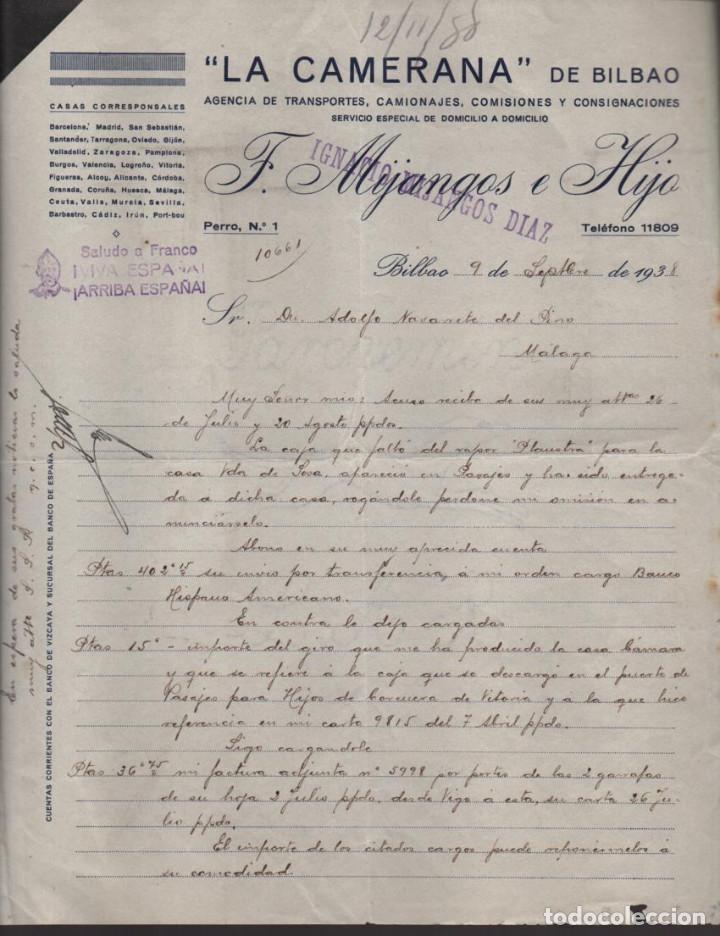 12/11/38
"LA CAMERANA" DE BILBAO
AGENCIA DE TRANSPORTES, CAMIONAJES, COMISIONES Y CONSIGNACIONES
SERVICIO ESPECIAL DE DOMICILIO A DOMICILIO
F. Mijangos e Hijo
IGNACIO MIJANGOS DIAZ
CASAS CORRESPONSALES
Barcelona, Madrid, San Sebastián,
Santander, Tarragona, Oviedo, Gijón,
Valladolid, Zaragoza, Pamplona,
Burgos, Valencia, Logroño, Vitoria,
Figueras, Alcoy, Alicante, Córdoba,
Granada, Coruña, Huesca, Málaga,
Ceuta, Valls, Murcia, Sevilla,
Barbastro, Cádiz, Irún, Port-bou
Perro, N.º 1
Teléfono 11809
Saludo a Franco
¡VIVA ESPAÑA!
¡ARRIBA ESPAÑA!
10661
Bilbao 9 de Septbre de 1938
Sr. Dn. Adolfo Navarrete del Pino
Málaga
Muy Señor mio: Acuso recibo de sus muy attas 26
de Julio y 20 Agosto ppdo.
La caja que faltó del vapor "Plaustra" para la
casa Vda de Sosa, apareció en Pasajes y ha sido entrega-
da a dicha casa, rogándole perdone mi omisión en a-
nunciárselo.
Abono en su muy apreciada cuenta
Ptas 402'15 su envio por transferencia, á mi orden cargo Banco
Hispano Americano.
En contra le dejo cargadas
Ptas 15' - importe del giro que me ha producido la casa Cámara
y que se refiere á la caja que se descargó en el puerto de
Pasajes para Hijos de Corcuera de Vitoria y á la que hice
referencia en mi carta 9815 del 7 Abril ppdo.
Sigo cargandole
Ptas 36'75 mi factura adjunta nº 5998 por portes de las 2 garrafas
de su hoja 2 Julio ppdo. desde Vigo á esta, su carta 26 Ju-
lio ppdo.
El importe de los citados cargos puede reponérmelos á
su comodidad.
En espera de sus gratas noticias le saluda
muy atte S. S. S. q. e. s. m.
CUENTAS CORRIENTES CON EL BANCO DE VIZCAYA Y SUCURSAL DEL BANCO DE ESPAÑA
todocoleccion.net